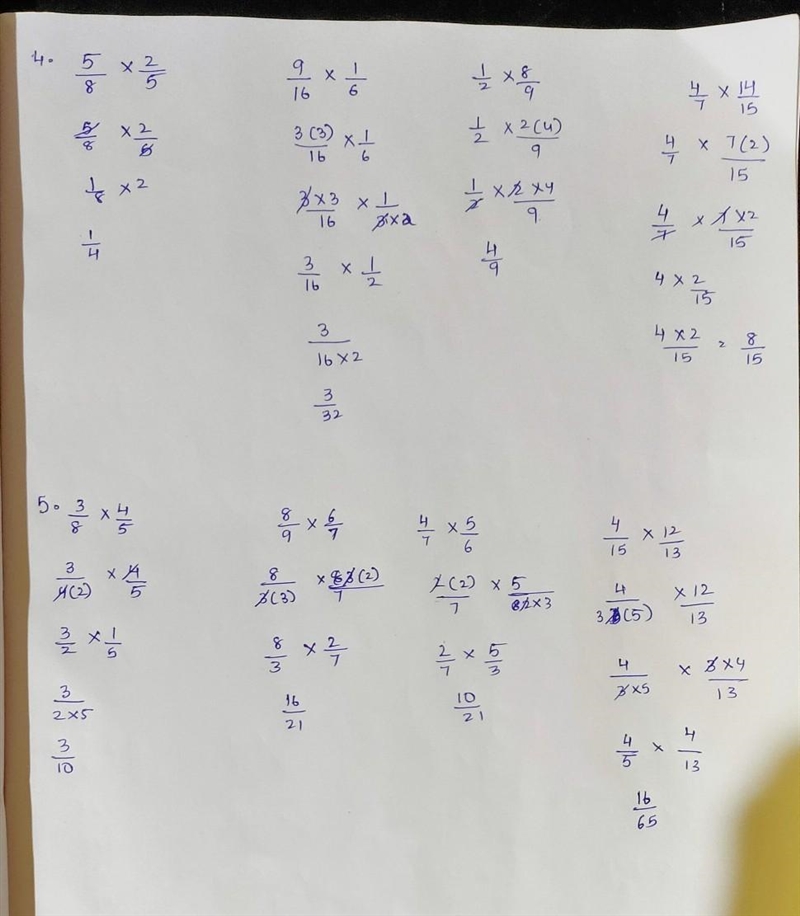 4. 5/8 × 2/5
5/8 × 2/5
1/8 × 2
1/4
9/16 × 1/6
3(3)/16 × 1/6
3×3/16 × 1/3×2
3/16 × 1/2
3/16×2
3/32
1/2 × 8/9
1/2 × 2(4)/9
1/2 × 2×4/9
4/9
4/7 × 14/15
4/7 × 7(2)/15
4/7 × 7×2/15
4 × 2/15
4×2/15 = 8/15
5. 3/8 × 4/5
3/4(2) × 4/5
3/2 × 1/5
3/2×5
3/10
8/9 × 6/7
8/3(3) × 3(2)/7
8/3 × 2/7
16/21
4/7 × 5/6
2(2)/7 × 5/2×3
2/7 × 5/3
10/21
4/15 × 12/13
4/3(5) × 12/13
4/3×5 × 3×4/13
4/5 × 4/13
16/65